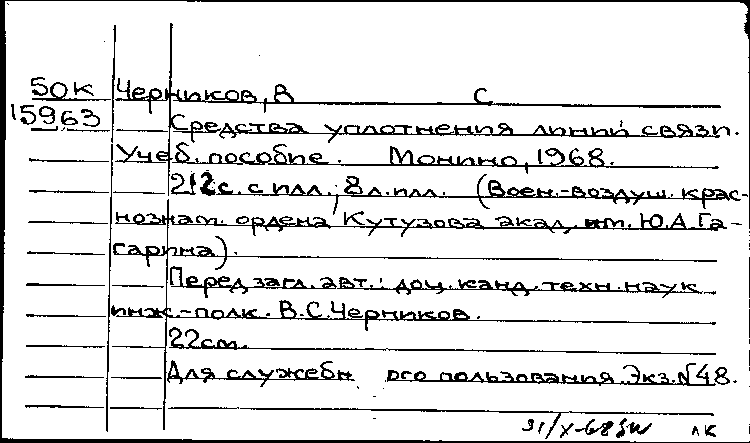 50К Черников, В С
15963 Средства уплотнения линий связи.
Учеб. пособие. Монино, 1968.
212с. с илл., 8 л. илл. (Воен.-воздуш. крас-
нознам. ордена Кутузова акад. им. Ю.А.Га-
гарина).
Перед загл. авт.: доц. канд. техн. наук
инж.-полк. В.С.Черников.
22см.
Для служебн ого пользования. Экз.№48.
31/X-68 лк